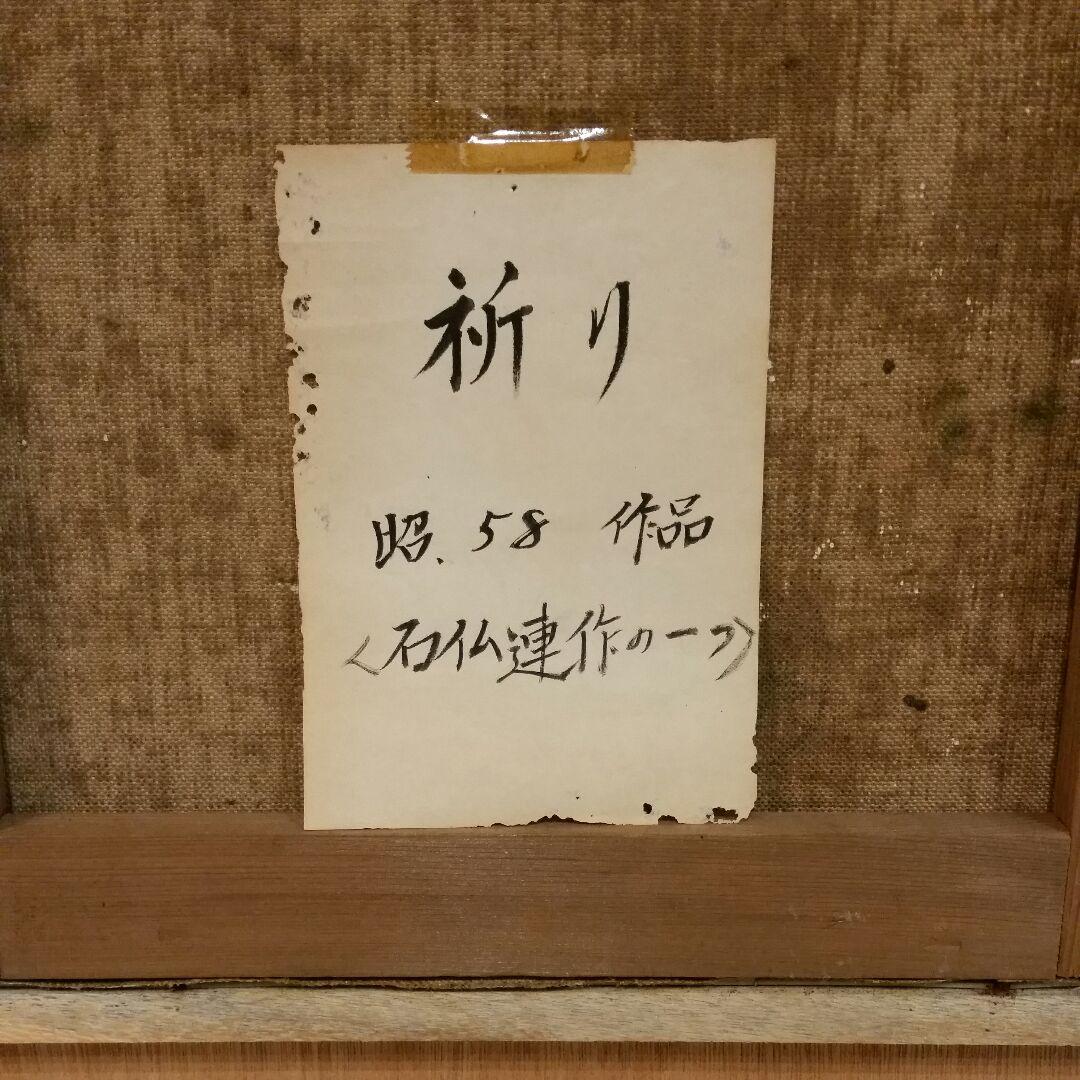 祈り
昭、58 作品
〈石仏連作の一つ〉